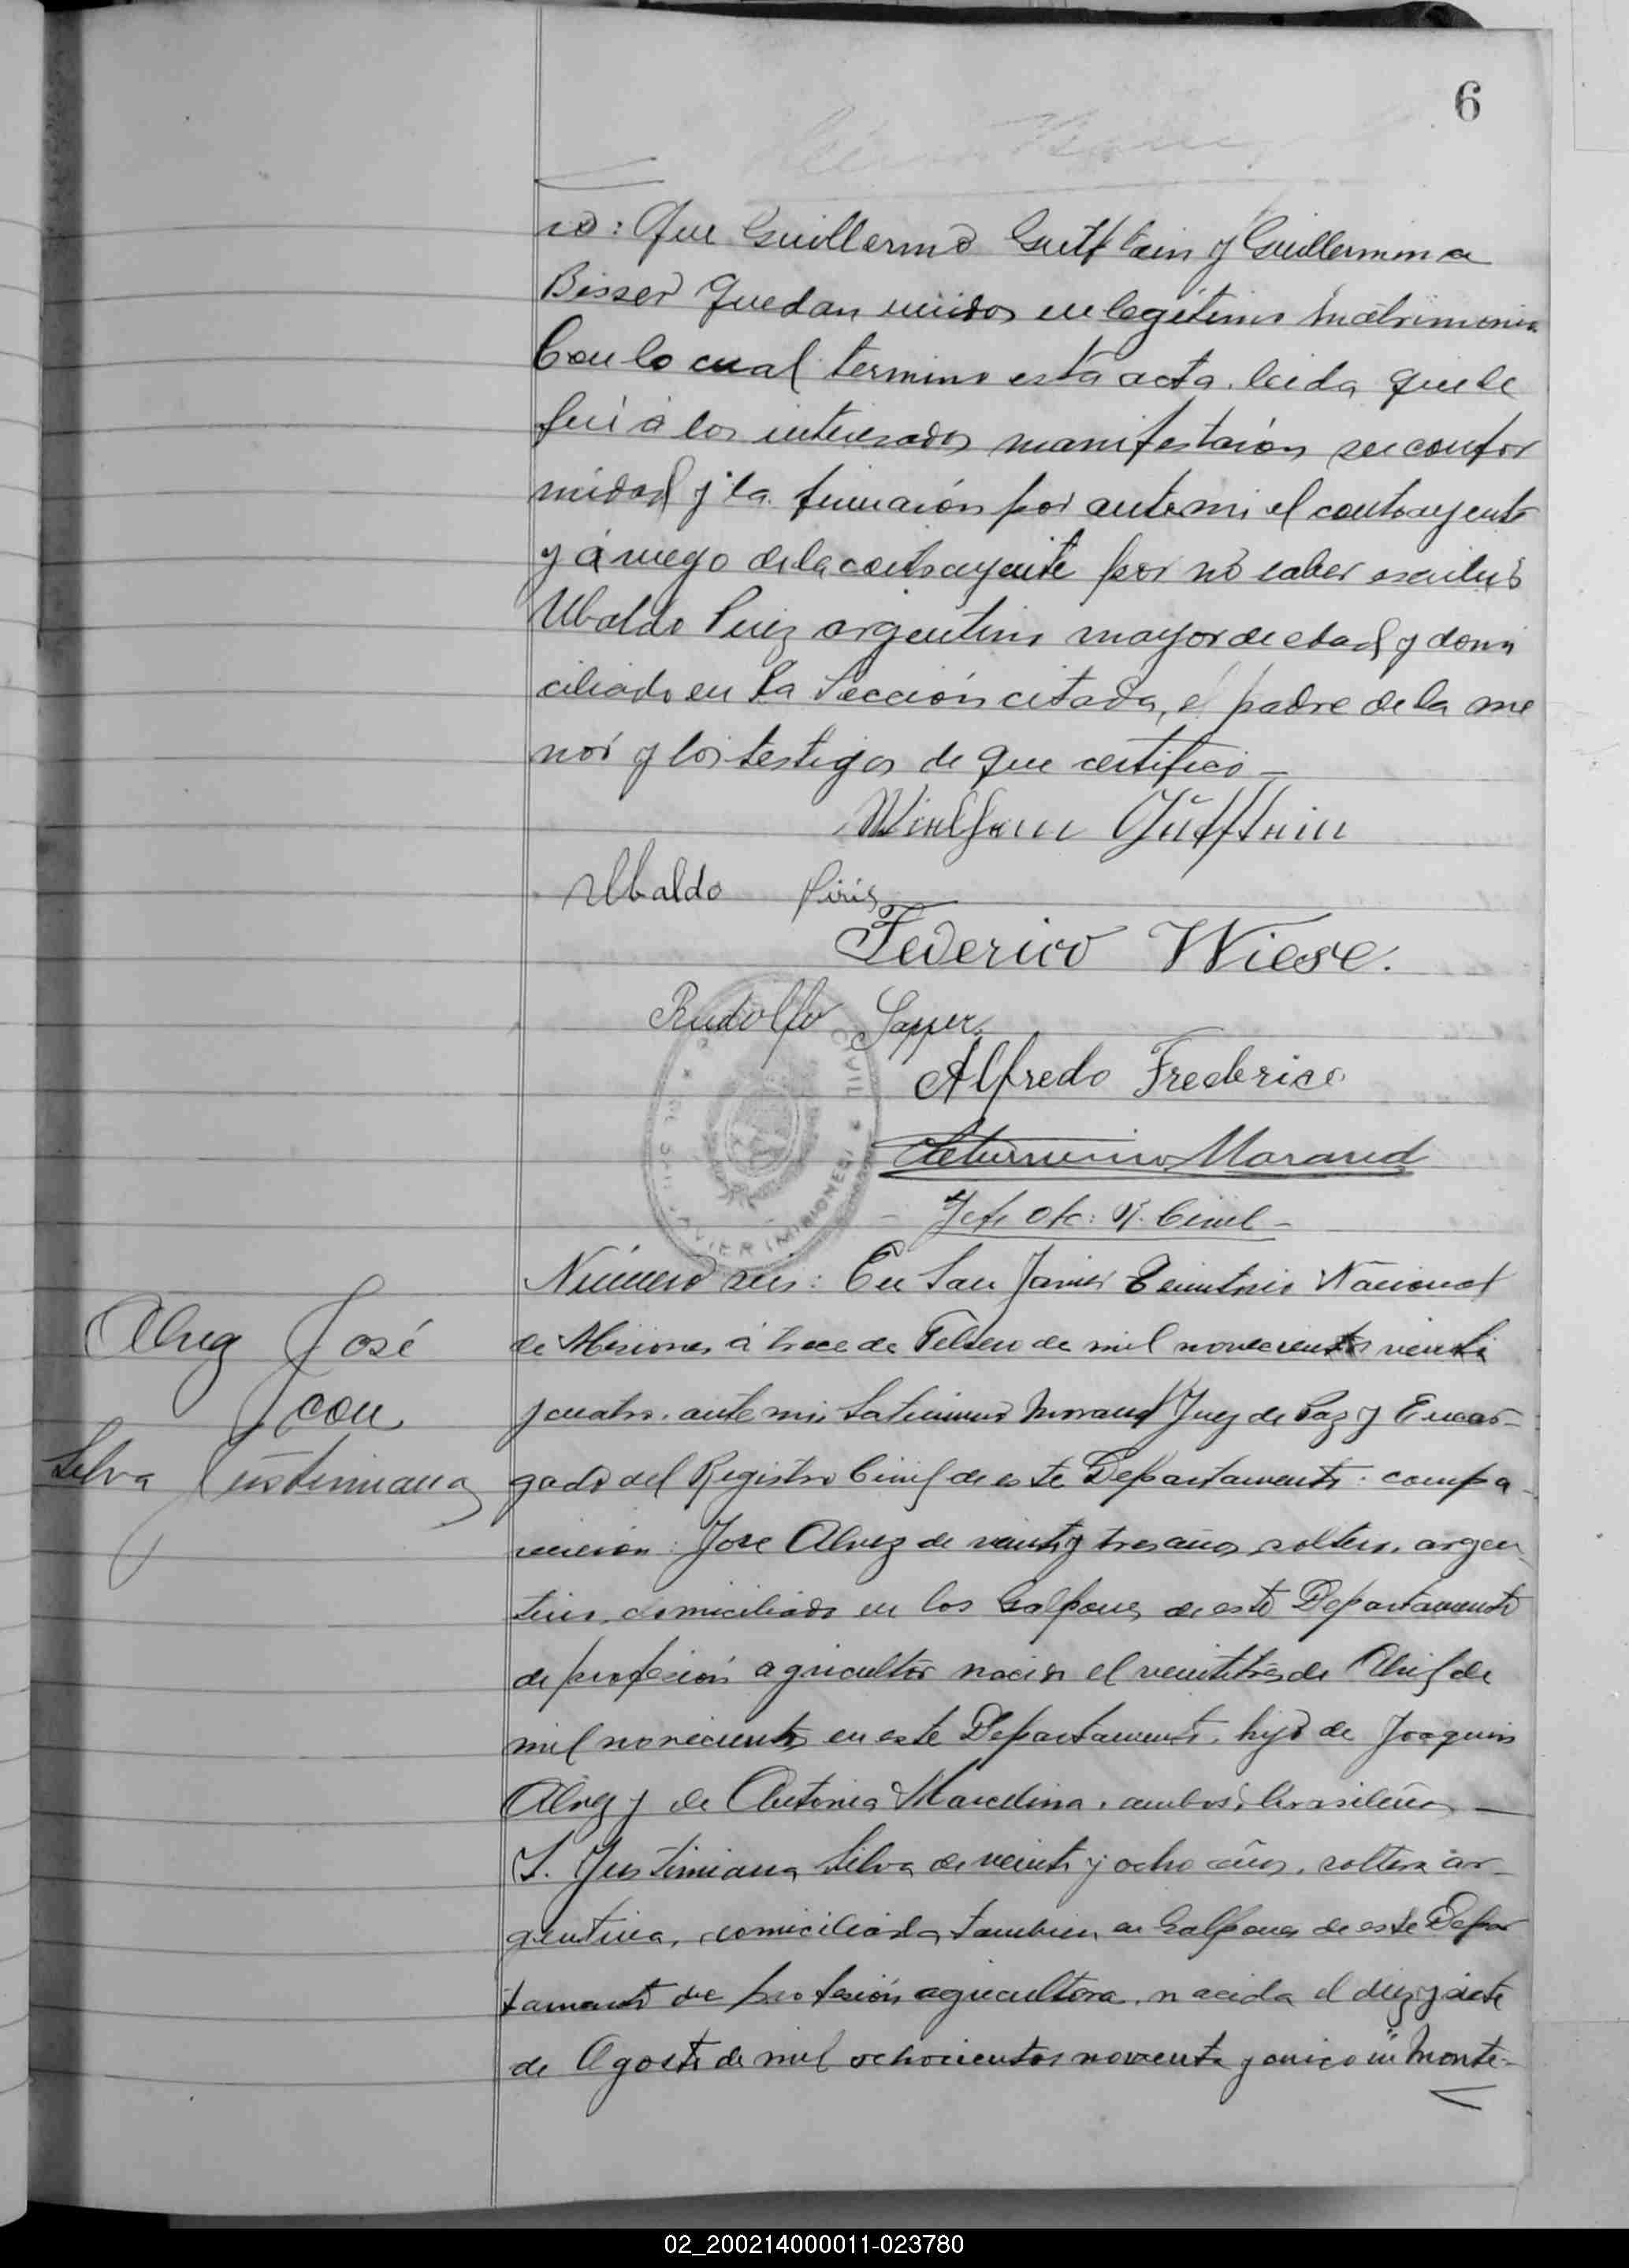 6
co: Que Guillermo Guttlein y Guillermina
Bisser quedan unidos en legitimo matrimonio
Con lo cual termino esta acta, leida que le
fué á los interesados manifestarón su confor
midad y la firmarón por ante mi el contrayente
y á ruego de la contrayente por no saber escribir
Ubaldo Piriz argentino mayor de edad y domi
ciliado en la Sección citada, el padre de la me
nor y los testigos de que certifico –
Ubaldo Piris
Federico Wiese.
Rudolfo Sapper
Alfredo Frederico
Saturnino Morand
Jefe Of: R. Civil –
Número seis: En San Javier Territorio Nacional
de Misiones á trece de Febrero de mil novecientos veinti
y cuatro, ante mi Saturnino Morand Juez de Paz y Encar-
gado del Registro Civil de este Departamento: compa-
recieron: José Alvez de veinte y tres años, soltero, argen-
tino, domiciliado en los Galpones de este Departamento
de profesión agricultor nacido el veintitres de Abril de
mil novecientos en este Departamento, hijo de Joaquin
Alvez y de Antonia Marcelina, ambos brasileños –
Y. Justiniana Silva de veinte y ocho años, soltera ar-
gentina, domiciliada tambien en Galpones de este Depar
tamento de profesión agricultora, nacida el diez y siete
de Agosto de mil ochocientos noventa y cinco en "Monte-
Alvez José
con
Silva Justiniana
02_200214000011-023780